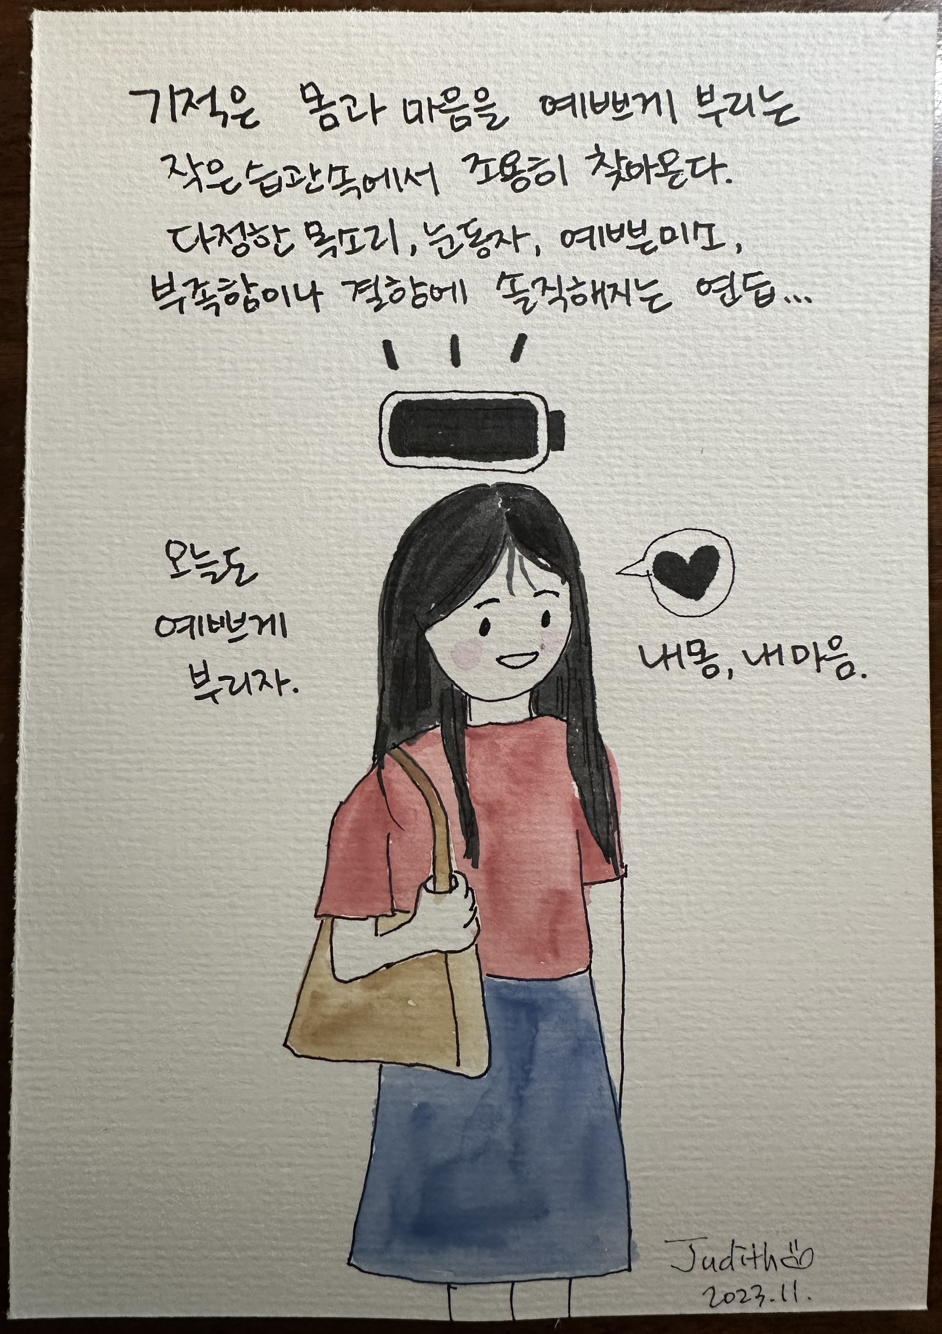 기적은 몸과 마음을 예쁘게 부리는
작은 습관속에서 조용히 찾아온다.
다정한 목소리, 눈동자, 예쁜미소,
부족함이나 결함에 솔직해지는 연습...
오늘도
예쁘게
부리자.
내몸, 내마음.
Judith
2023.11.